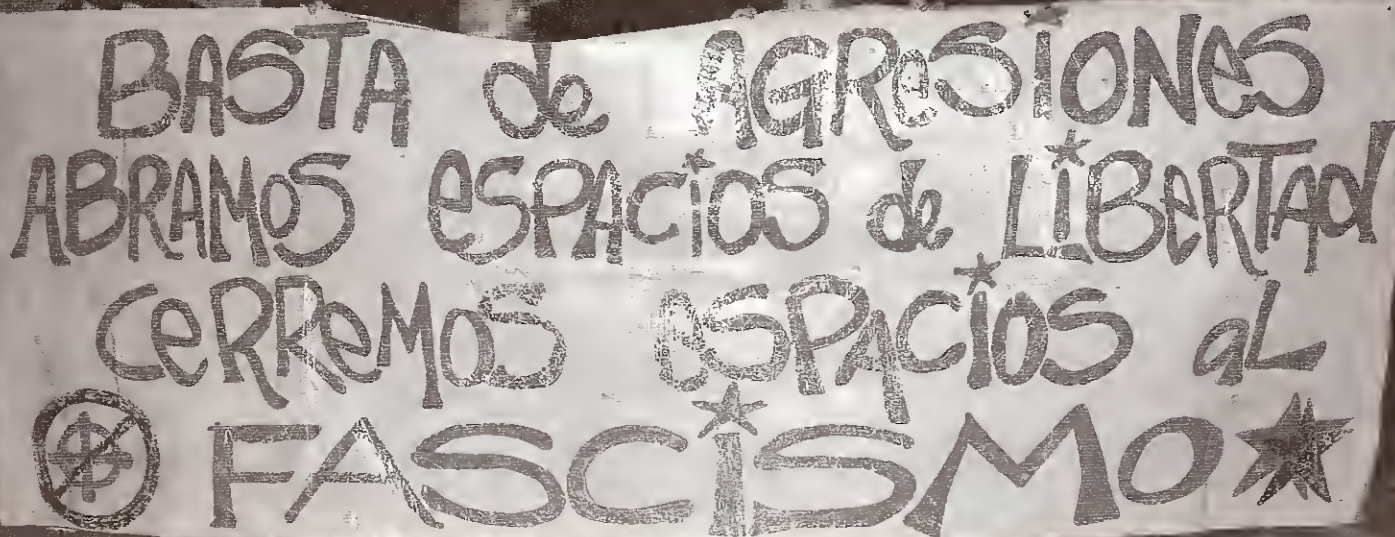 BASTA de AGReSiONeS
ABRAMoS eSPAciOS de LiBeRTAd
CeRReMOS eSPACiOS aL
FASCiSMO